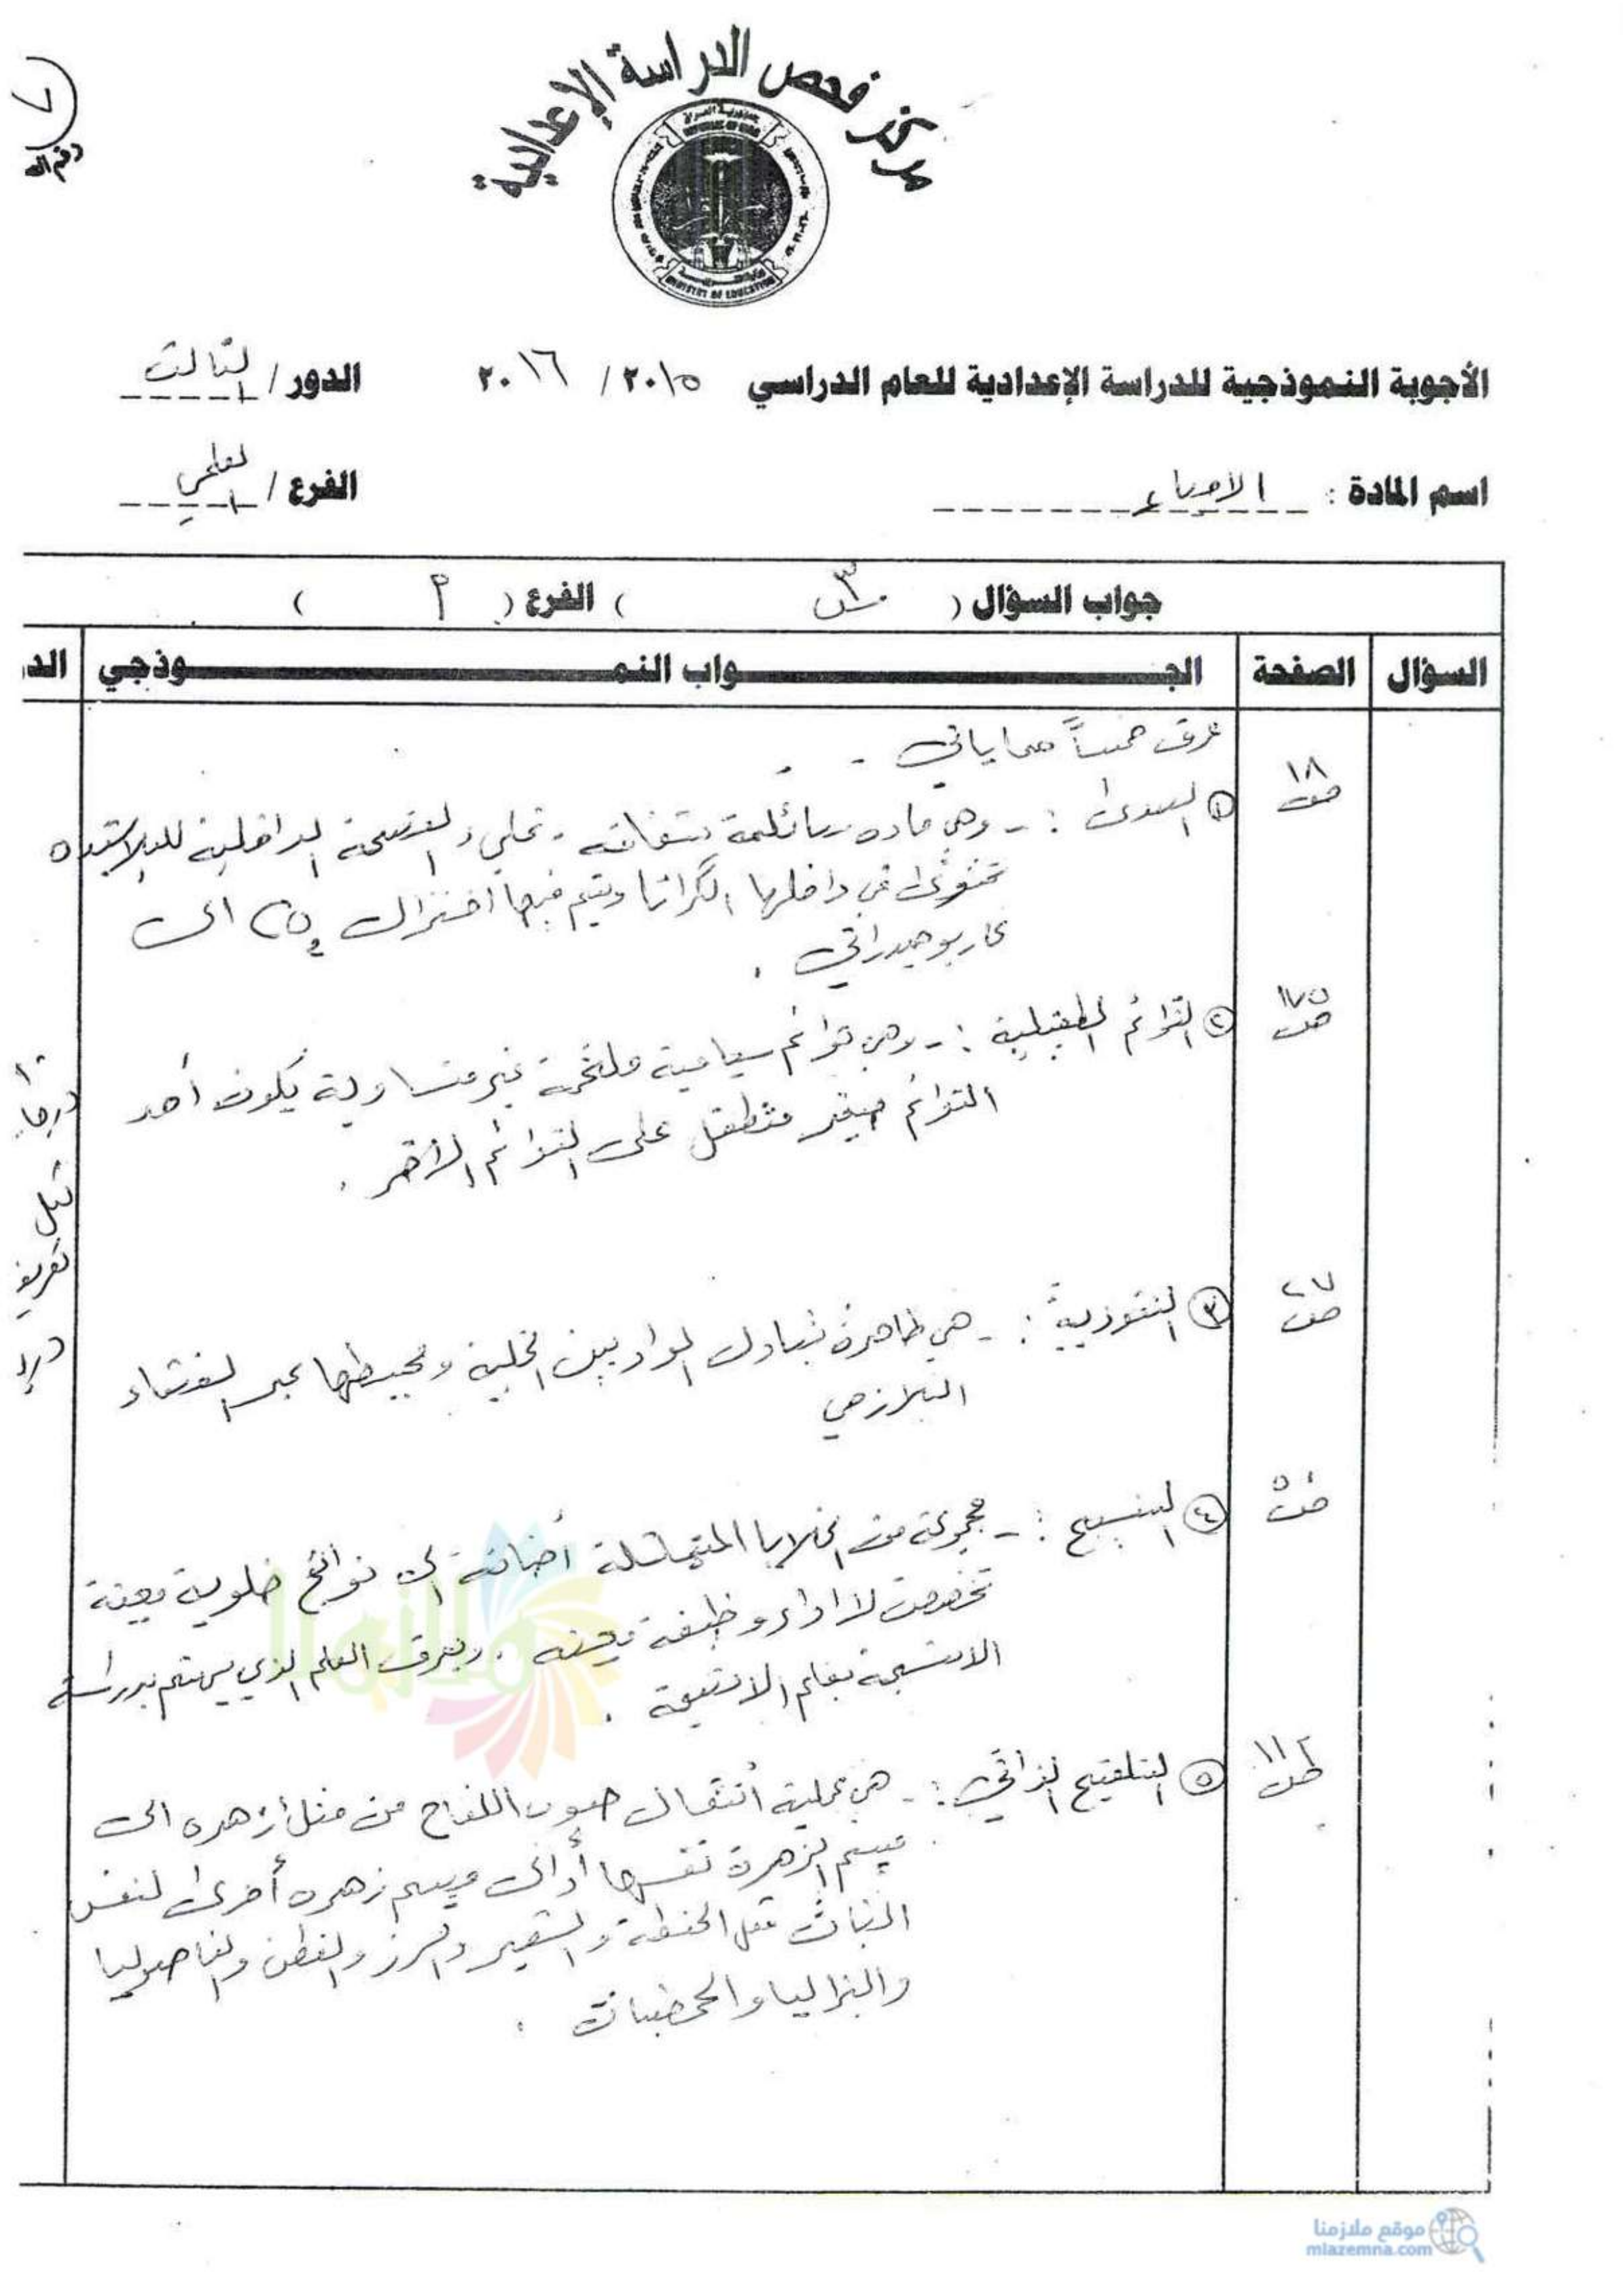 مركز فحص الدراسة الإعدادية
جمهورية العراق
REPUBLIC OF IRAQ
MINISTRY OF EDUCATION
٧
رقم
الأجوبة النموذجية للدراسة الإعدادية للعام الدراسي ٢٠١٥ / ٢٠١٦ الدور / الثالث
اسم المادة : الاحياء الفرع / العلمي
جواب السؤال ( س٣ ) الفرع ( أ )
السؤال الصفحة الجواب النموذجي
عرف خمساً مما ياتي :-
ص١٨ ① السدى :- وهي مادة سائلة شفافة تملىء الفسحة الداخلية للبلاستيدة
تحتوي في داخلها الكرانا ويتم فيها اختزال CO₂ الى
كاربوهيدراتي .
ص١٧٥ ② التوائم الطفيلية :- وهي توائم سيامية ملتحمة غير متساوية يكون أحد
التوائم صغير متطفل على التوائم الاخر .
ص٢٧ ③ النفوذية :- هي ظاهرة تبادل المواد بين الخلية ومحيطها عبر الغشاء
البلازمي
ص٥٠ ④ النسيج :- مجموعة من الخلايا المتماثلة أضافة الى نواتج خلوية معينة
تخصصت لاداء وظيفة معينة . ويعرف العلم الذي يهتم بدراسة
الانسجة بعلم الانسجة .
ص١١٢ ⑤ التلقيح الذاتي :- هي عملية أنتقال حبوب اللقاح من متك زهرة الى
ميسم الزهرة نفسها أو الى ميسم زهرة أخرى لنفس
النبات مثل الحنطة والشعير والرز والقطن والفاصوليا
والبزاليا والحمضيات .
١٠
درجات
لكل
تعريف
ملازمنا
موقع ملازمنا
mlazemna.com